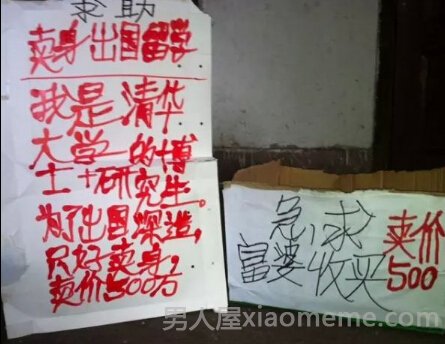 求助
卖身出国留学
我是清华
大学的博
士+研究生。
为了出国深造,
只好卖身,
卖价500万
急求
富婆收买
卖价
500
男人屋xiaomeme.com